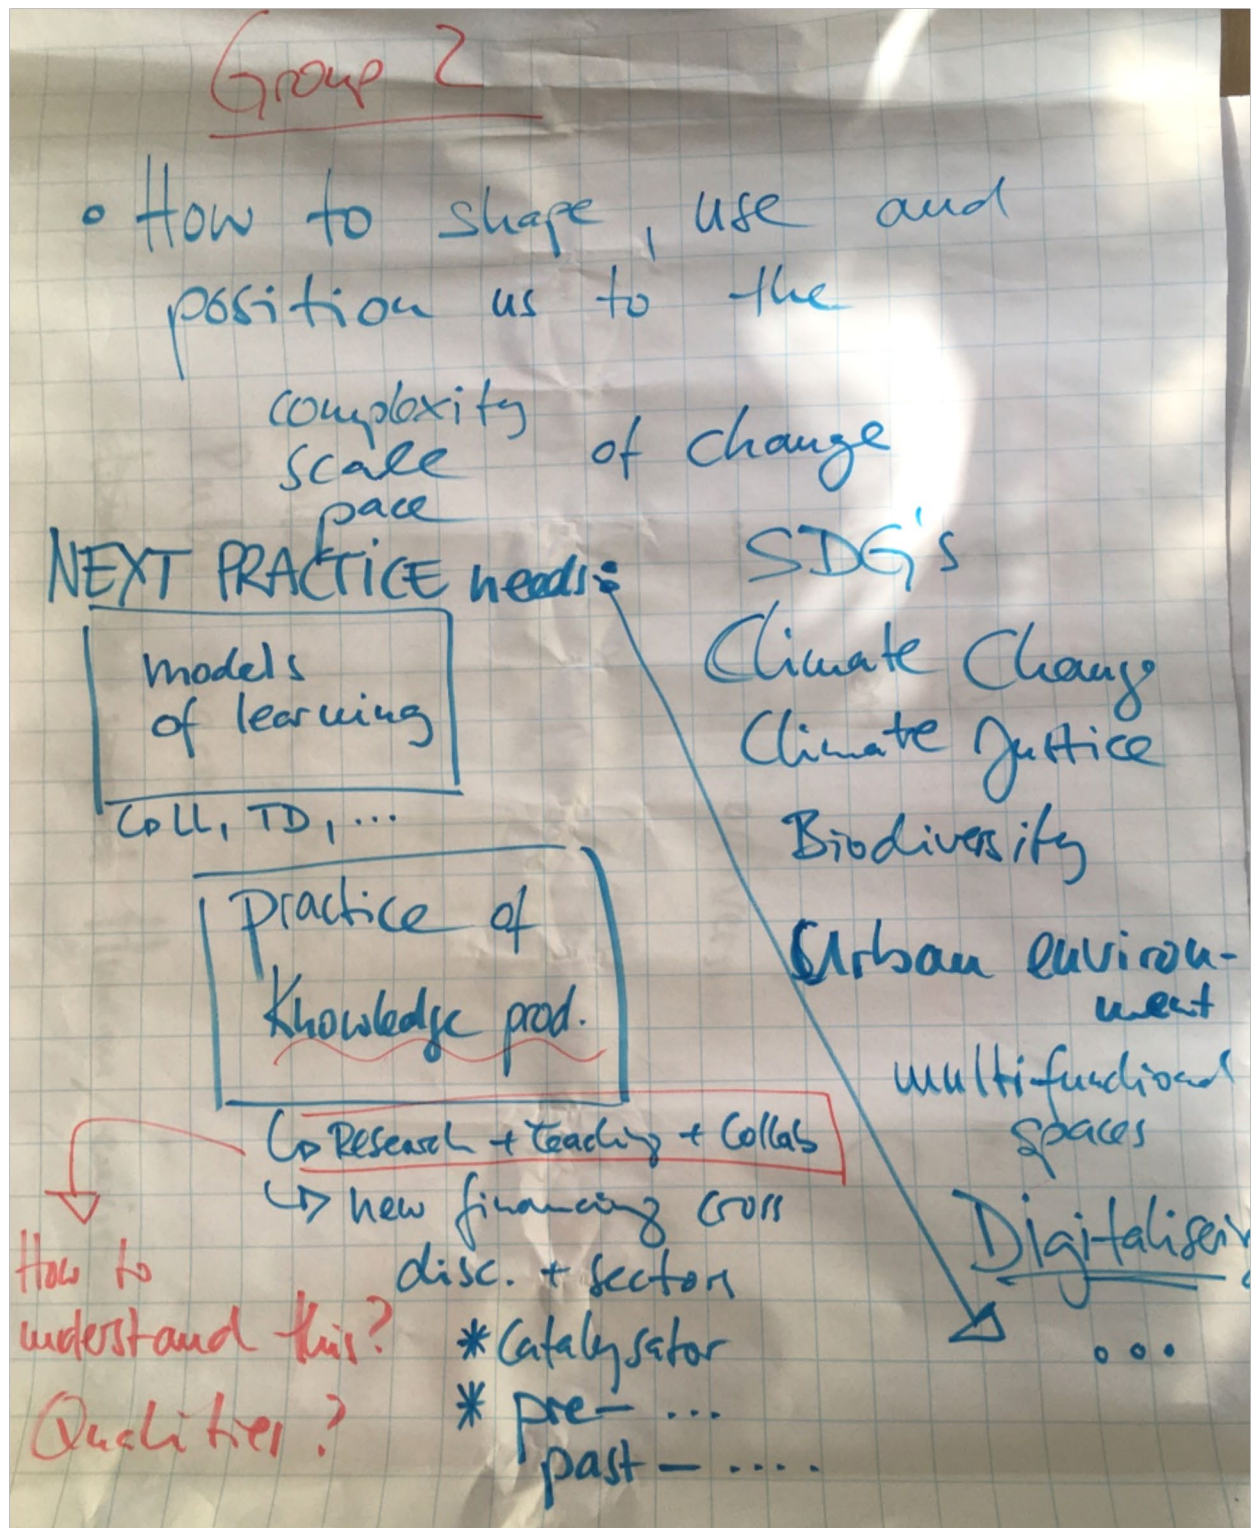 Group 2
• How to shape, use and
position us to the
complexity
scale
pace
of change
NEXT PRACTICE needs:
models
of learning
Coll, TD, ...
practice of
Knowledge prod.
↳ Research + teaching + Collab
↳ new financing cross
disc. + sectors
* Catalysator
* pre- ...
past - ....
How to
understand this?
Qualities?
SDG's
Climate Change
Climate Justice
Biodiversity
Urban environ-
ment
multifunctional
spaces
...